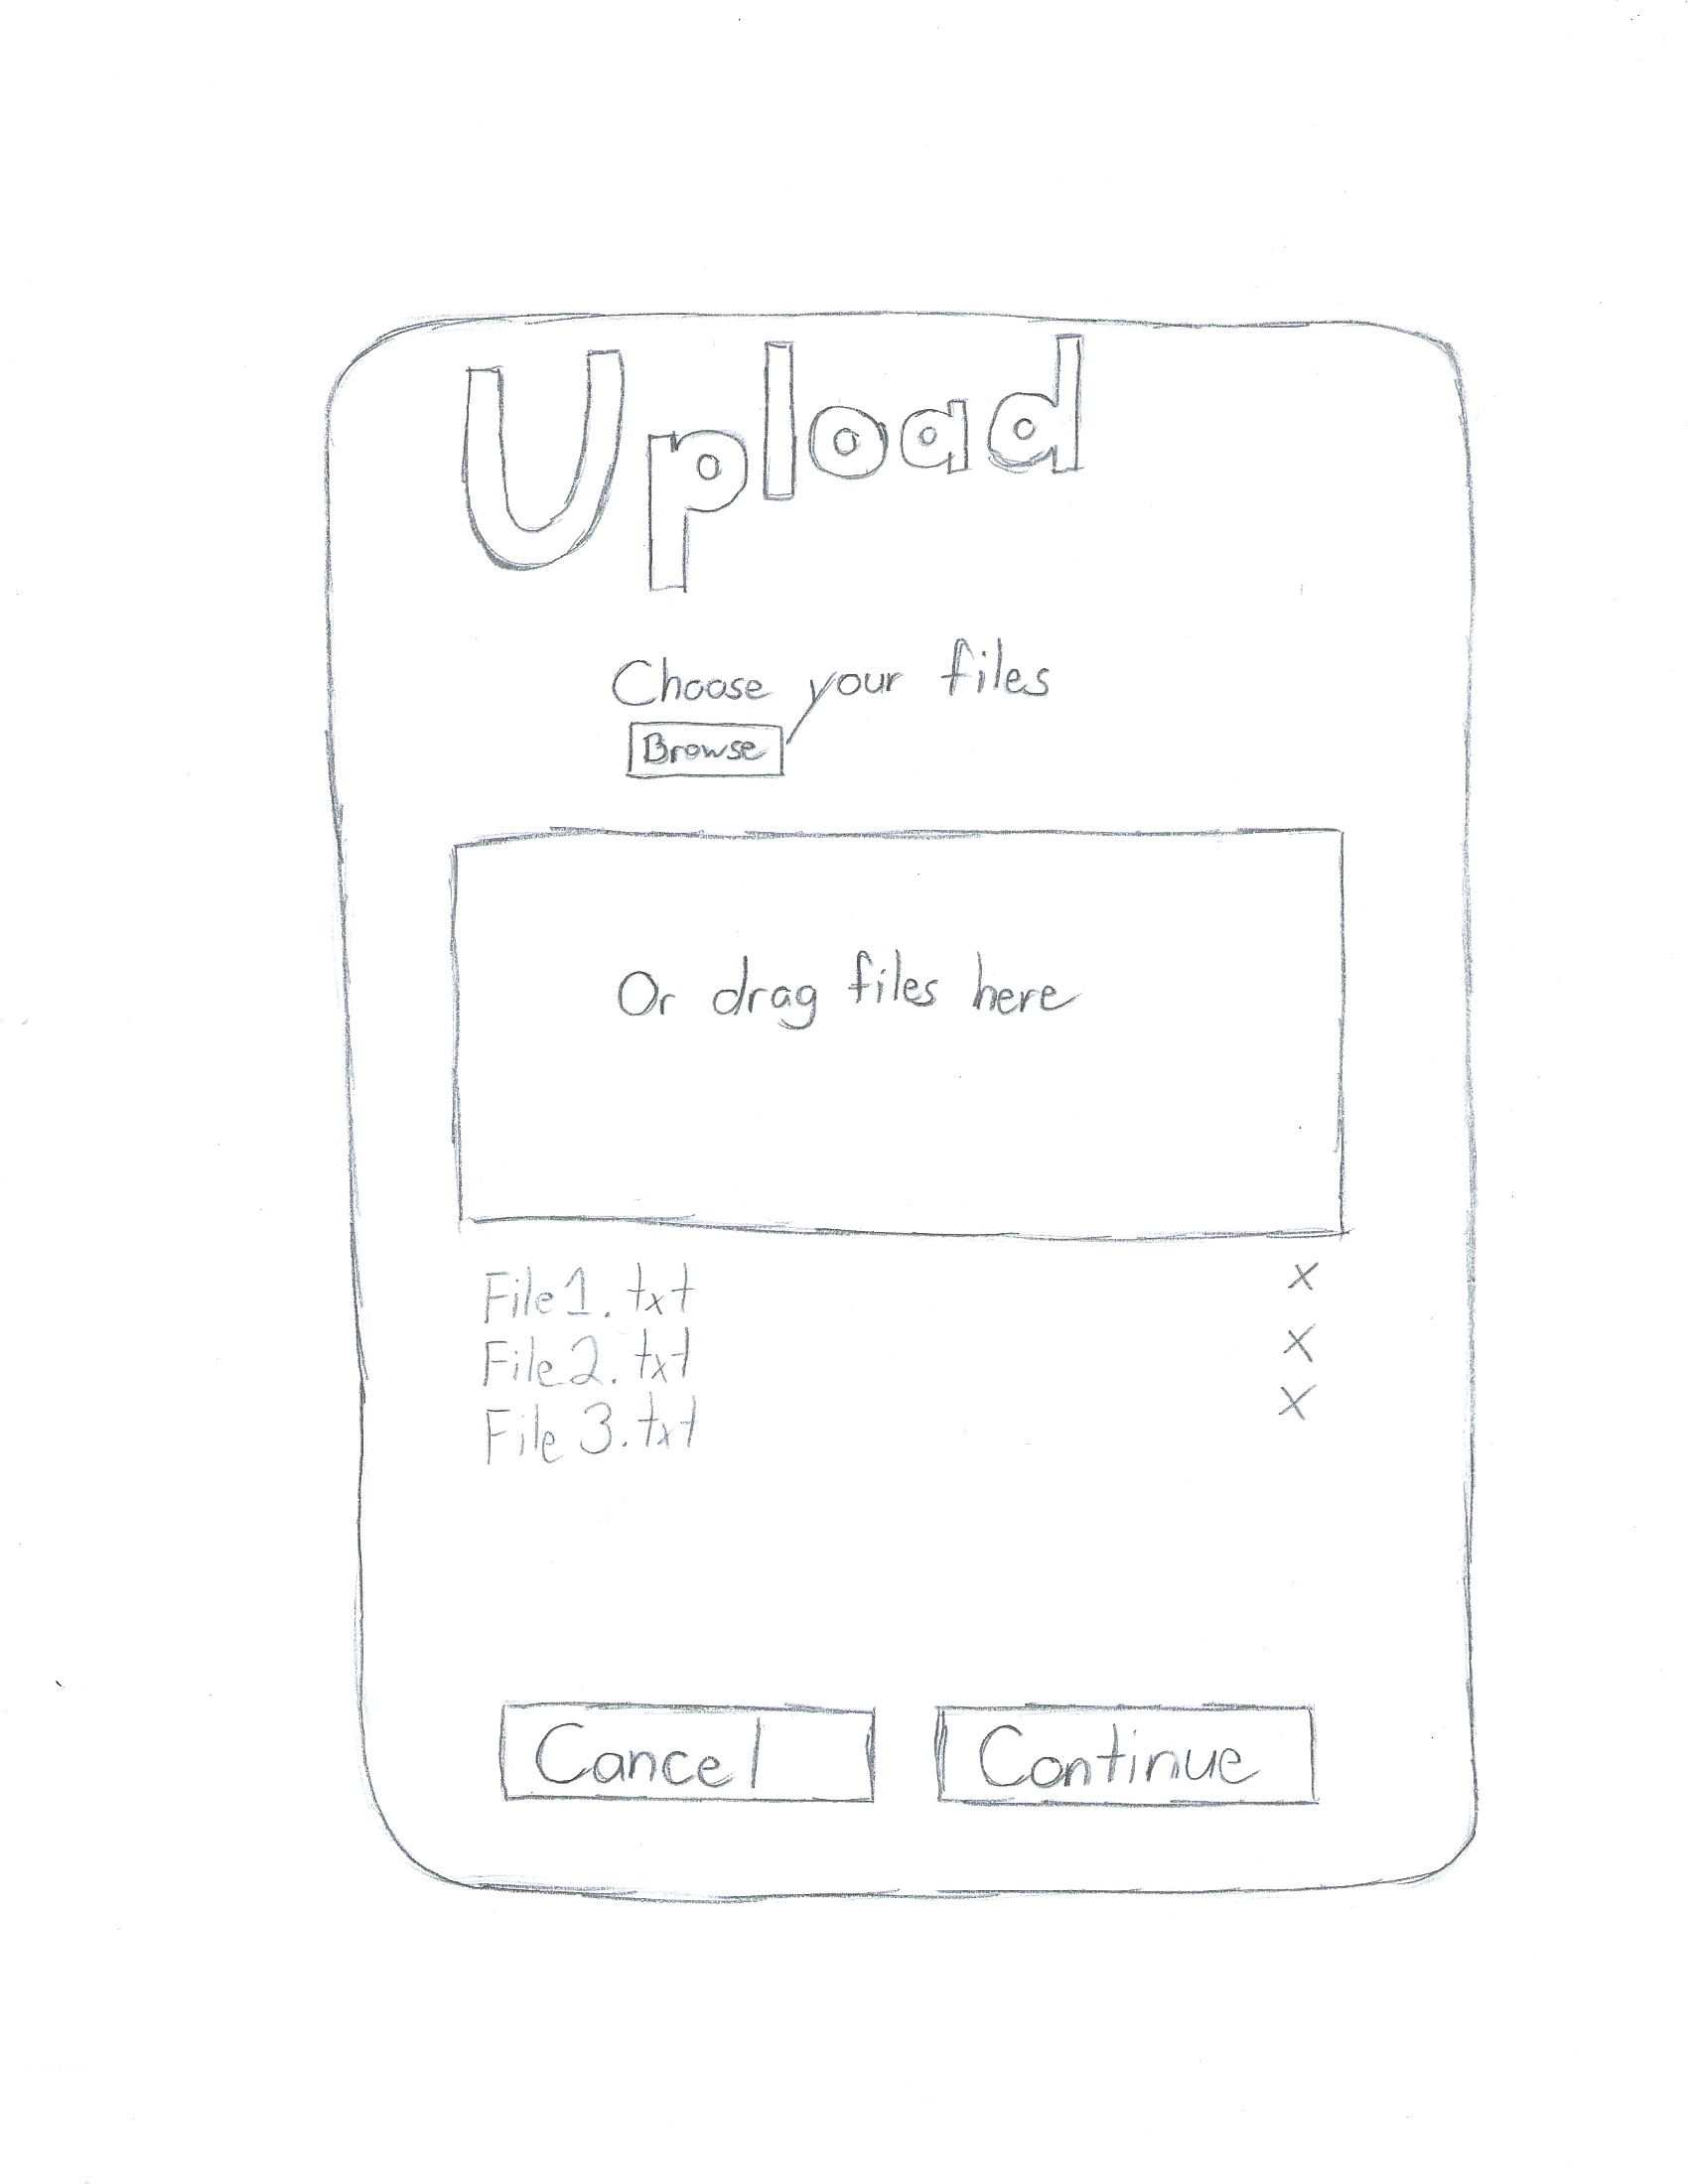 Upload
Choose your files
Browse
Or drag files here
File1.txt X
File2.txt X
File 3.txt X
Cancel
Continue